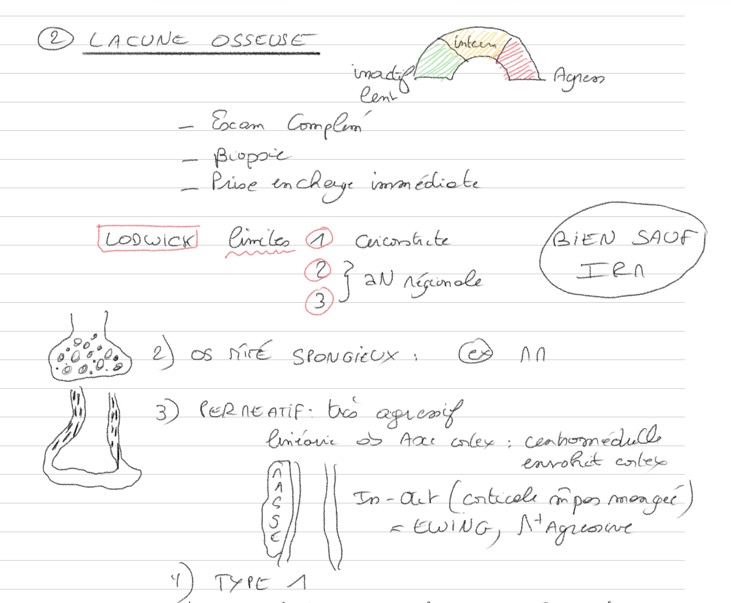 2 LACUNE OSSEUSE
interm
inactif Agress
lent
- Exam Complém
- Biopsie
- Prise en charge immédiate
LODWICK limites 1 circonscrite BIEN SAUF
2 } aN régionale IRM
3
2) OS MITÉ SPONGIEUX : ex MM
3) PERMEATIF. très agressif
linéaire ds Axe cortex : centromédulle
envahit cortex
MASSE In-Out (corticale m̂ pas mangée)
= EWING, M+ Agressive
1) TYPE 1